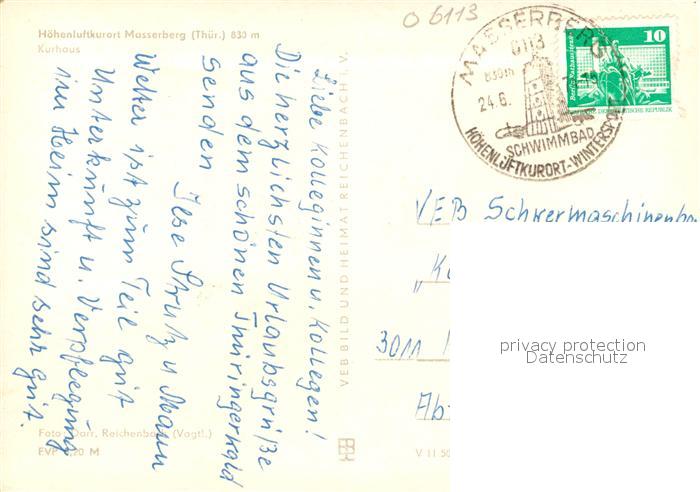 Höhenluftkurort Masserberg (Thür.) 830 m
Kurhaus
Liebe Kolleginnen u. Kollegen!
Die herzlichsten Urlaubsgrüße
aus dem schönen Thüringerwald
senden
Ilse Strutz u Mann
Wetter ist zum Teil gut
Unterkunft u. Verpflegung
im Heim sind sehr gut.
VEB BILD UND HEIMAT REICHENBACH I. V.
Foto: Darr, Reichenbach (Vogtl.)
EVP 0,20 M
V 11 50
O 6113
MASSERBERG
6113
830m
24.6.
SCHWIMMBAD
HÖHENLUFTKURORT-WINTERSPORT
10
VEB Schwermaschinenba
3011
Abt
privacy protection
Datenschutz